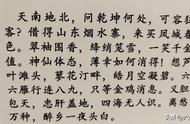 天南地北，问乾坤何处，可容狂
客？借得山东烟水寨，来买凤城春
色。翠袖围香，绛绡笼雪，一笑千金
值。神仙体态，薄幸如何消得！想芦
叶滩头，蓼花汀畔，皓月空凝碧。六
六雁行连八九，只等金鸡消息。义胆
包天，忠肝盖地，四海无人识。离愁
万种，醉乡一夜头白。